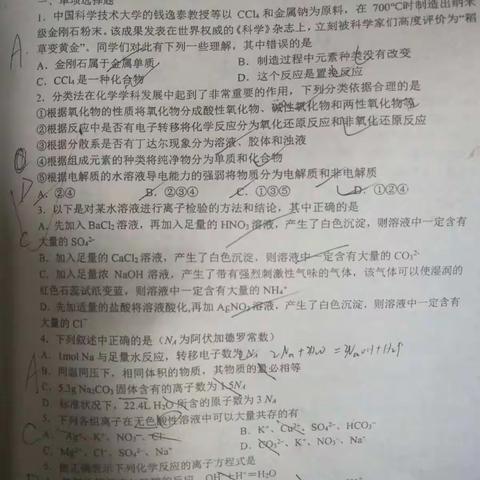 一、单项选择题
1. 中国科学技术大学的钱逸泰教授等以 CCl₄ 和金属钠为原料，在 700℃时制造出纳米
级金刚石粉末。该成果发表在世界权威的《科学》杂志上，立刻被科学家们高度评价为“稻
草变黄金”。同学们对此有下列一些理解，其中错误的是
A. 金刚石属于金属单质 B. 制造过程中元素种类没有改变
C. CCl₄ 是一种化合物 D. 这个反应是置换反应
A.
2. 分类法在化学学科发展中起到了非常重要的作用，下列分类依据合理的是
①根据氧化物的性质将氧化物分成酸性氧化物、碱性氧化物和两性氧化物等
②根据反应中是否有电子转移将化学反应分为氧化还原反应和非氧化还原反应
③根据分散系是否有丁达尔现象分为溶液、胶体和浊液
④根据组成元素的种类将纯净物分为单质和化合物
⑤根据电解质的水溶液导电能力的强弱将物质分为电解质和非电解质
A. ②④ B. ②③④ C. ①③⑤ D. ①②④
D
3. 以下是对某水溶液进行离子检验的方法和结论，其中正确的是
A. 先加入 BaCl₂ 溶液，再加入足量的 HNO₃ 溶液，产生了白色沉淀，则溶液中一定含有
大量的 SO₄²⁻
C
B. 加入足量的 CaCl₂ 溶液，产生了白色沉淀，则溶液中一定含有大量的 CO₃²⁻
C. 加入足量浓 NaOH 溶液，产生了带有强烈刺激性气味的气体，该气体可以使湿润的
红色石蕊试纸变蓝，则溶液中一定含有大量的 NH₄⁺
D. 先加适量的盐酸将溶液酸化,再加 AgNO₃ 溶液，产生了白色沉淀，则溶液中一定含有
大量的 Cl⁻
4. 下列叙述中正确的是（Nₐ 为阿伏加德罗常数）
A. 1mol Na 与足量水反应，转移电子数为
B. 同温同压下，相同体积的物质，其物质的量必相等
A
C. 5.3g Na₂CO₃ 固体含有的离子数为 1.5Nₐ
D. 标准状况下，22.4L H₂O 所含的原子数为 3 Nₐ
5. 下列各组离子在无色酸性溶液中可以大量共存的有
A. Ag⁺、K⁺、NO₃⁻、Cl⁻ B. K⁺、Cu²⁺、SO₄²⁻、HCO₃⁻
C
C. Mg²⁺、Cl⁻、SO₄²⁻、Na⁺ D. CO₃²⁻、K⁺、NO₃⁻、Na⁺
6. 能正确表示下列化学反应的离子方程式是